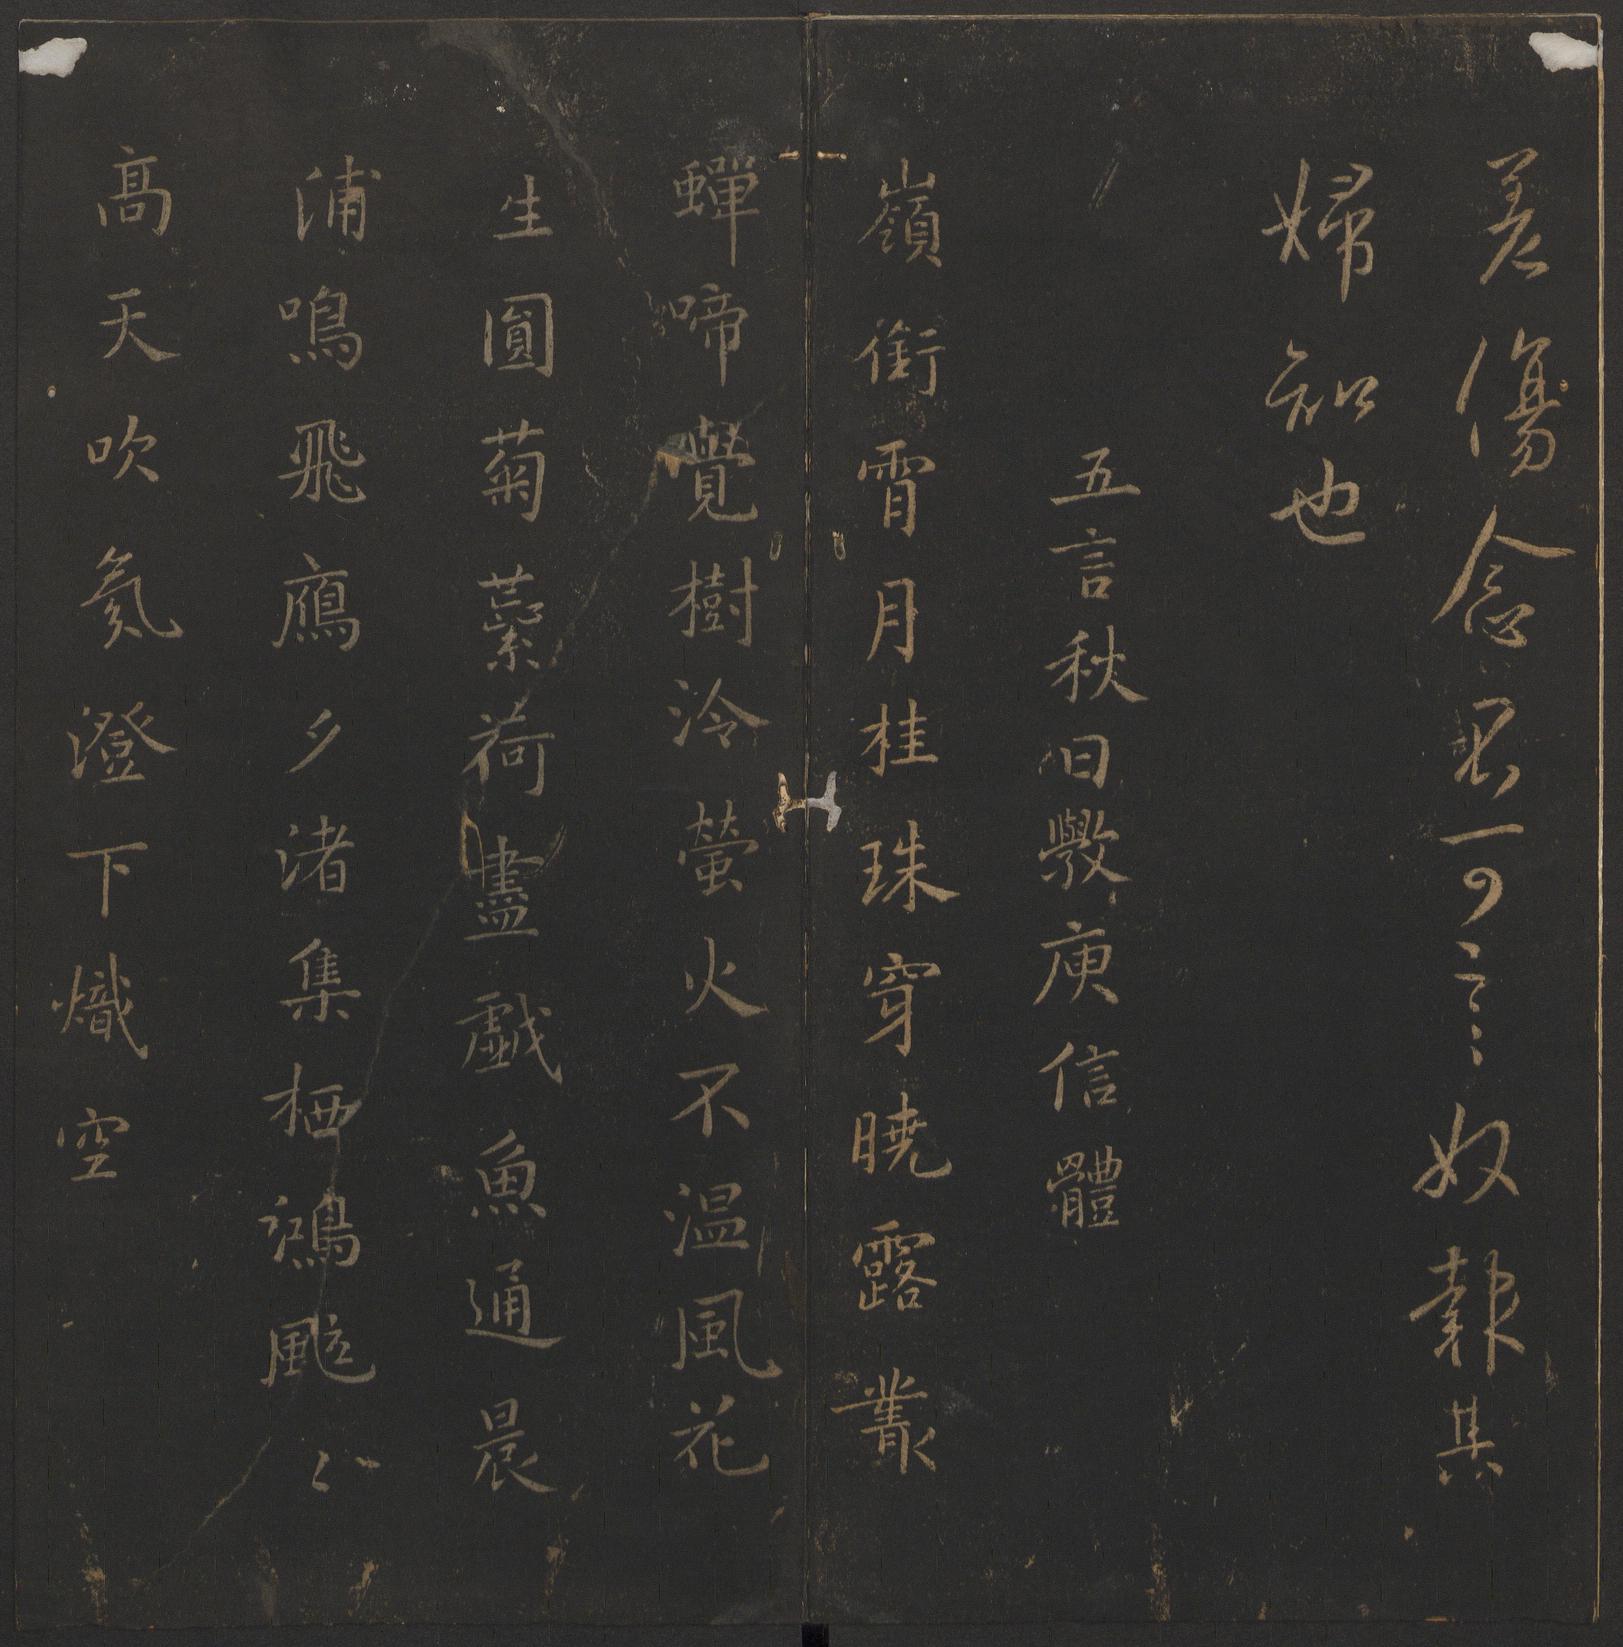 差傷念可言奴報其
婦知也
五言秋日斆庾信體
嶺銜霄月桂珠穿曉露叢
蟬啼覺樹冷螢火不温風花
生圓菊蘂荷盡戲魚通晨
浦鳴飛鴈夕渚集栖鴻颯〻
髙天吹氛澄下熾空